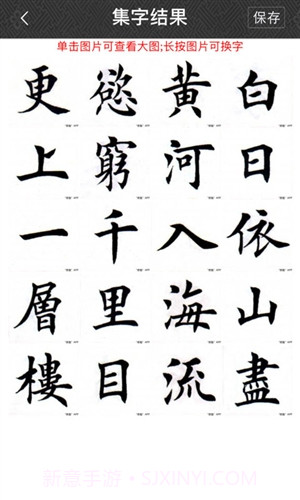 集字结果
保存
单击图片可查看大图;长按图片可换字
白日依山盡
黄河入海流
慾窮千里目
更上一層樓
新意手游·SJXINYI.COM